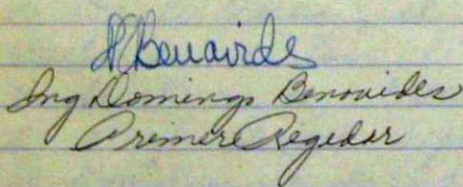 D Benavides
Ing Domingo Benavides
Primer Regidor